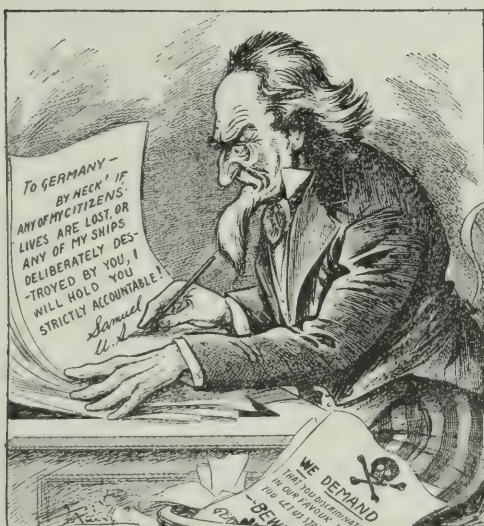 TO GERMANY —
BY HECK! IF
ANY OF MY CITIZENS'
LIVES ARE LOST, OR
ANY OF MY SHIPS
DELIBERATELY DES-
-TROYED BY YOU, I
WILL HOLD YOU
STRICTLY ACCOUNTABLE!
Samuel
U.S.
WE DEMAND
THAT YOU DISCRIMINATE
IN OUR FAVOUR
YOU LET US